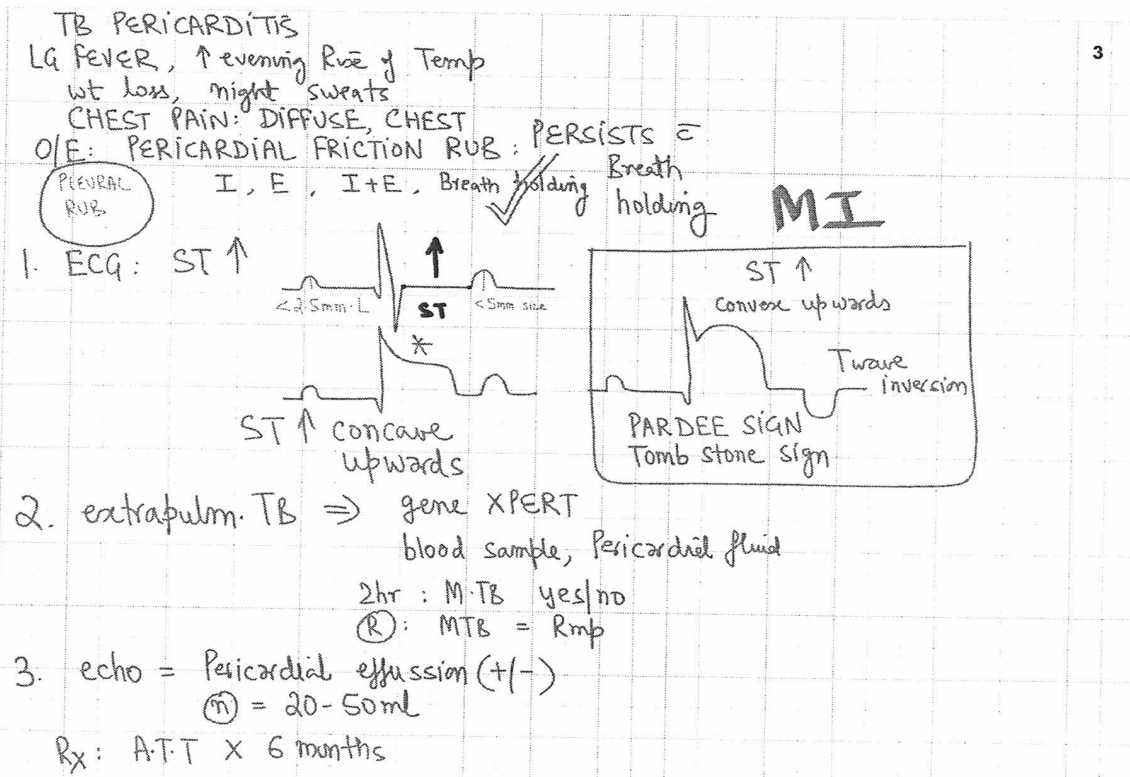 TB PERICARDITIS
3
LG FEVER, ↑ evening Rise of Temp
wt loss, night sweats
CHEST PAIN: DIFFUSE, CHEST
O/E: PERICARDIAL FRICTION RUB: PERSISTS c̄
Breath
holding
PLEURAL
RUB
I, E, I+E, Breath holding
MI
1. ECG: ST ↑
<2.5mm.L
ST
<5mm size
*
ST ↑ concave
upwards
ST ↑
Convex upwards
T wave
inversion
PARDEE SIGN
Tomb stone sign
2. extrapulm. TB ⇒ gene XPERT
blood sample, Pericardial fluid
2hr: M.TB yes/no
(R): MTB = Rmp
3. echo = Pericardial effussion (+/-)
(n) = 20-50ml
Rx: A.T.T X 6 months